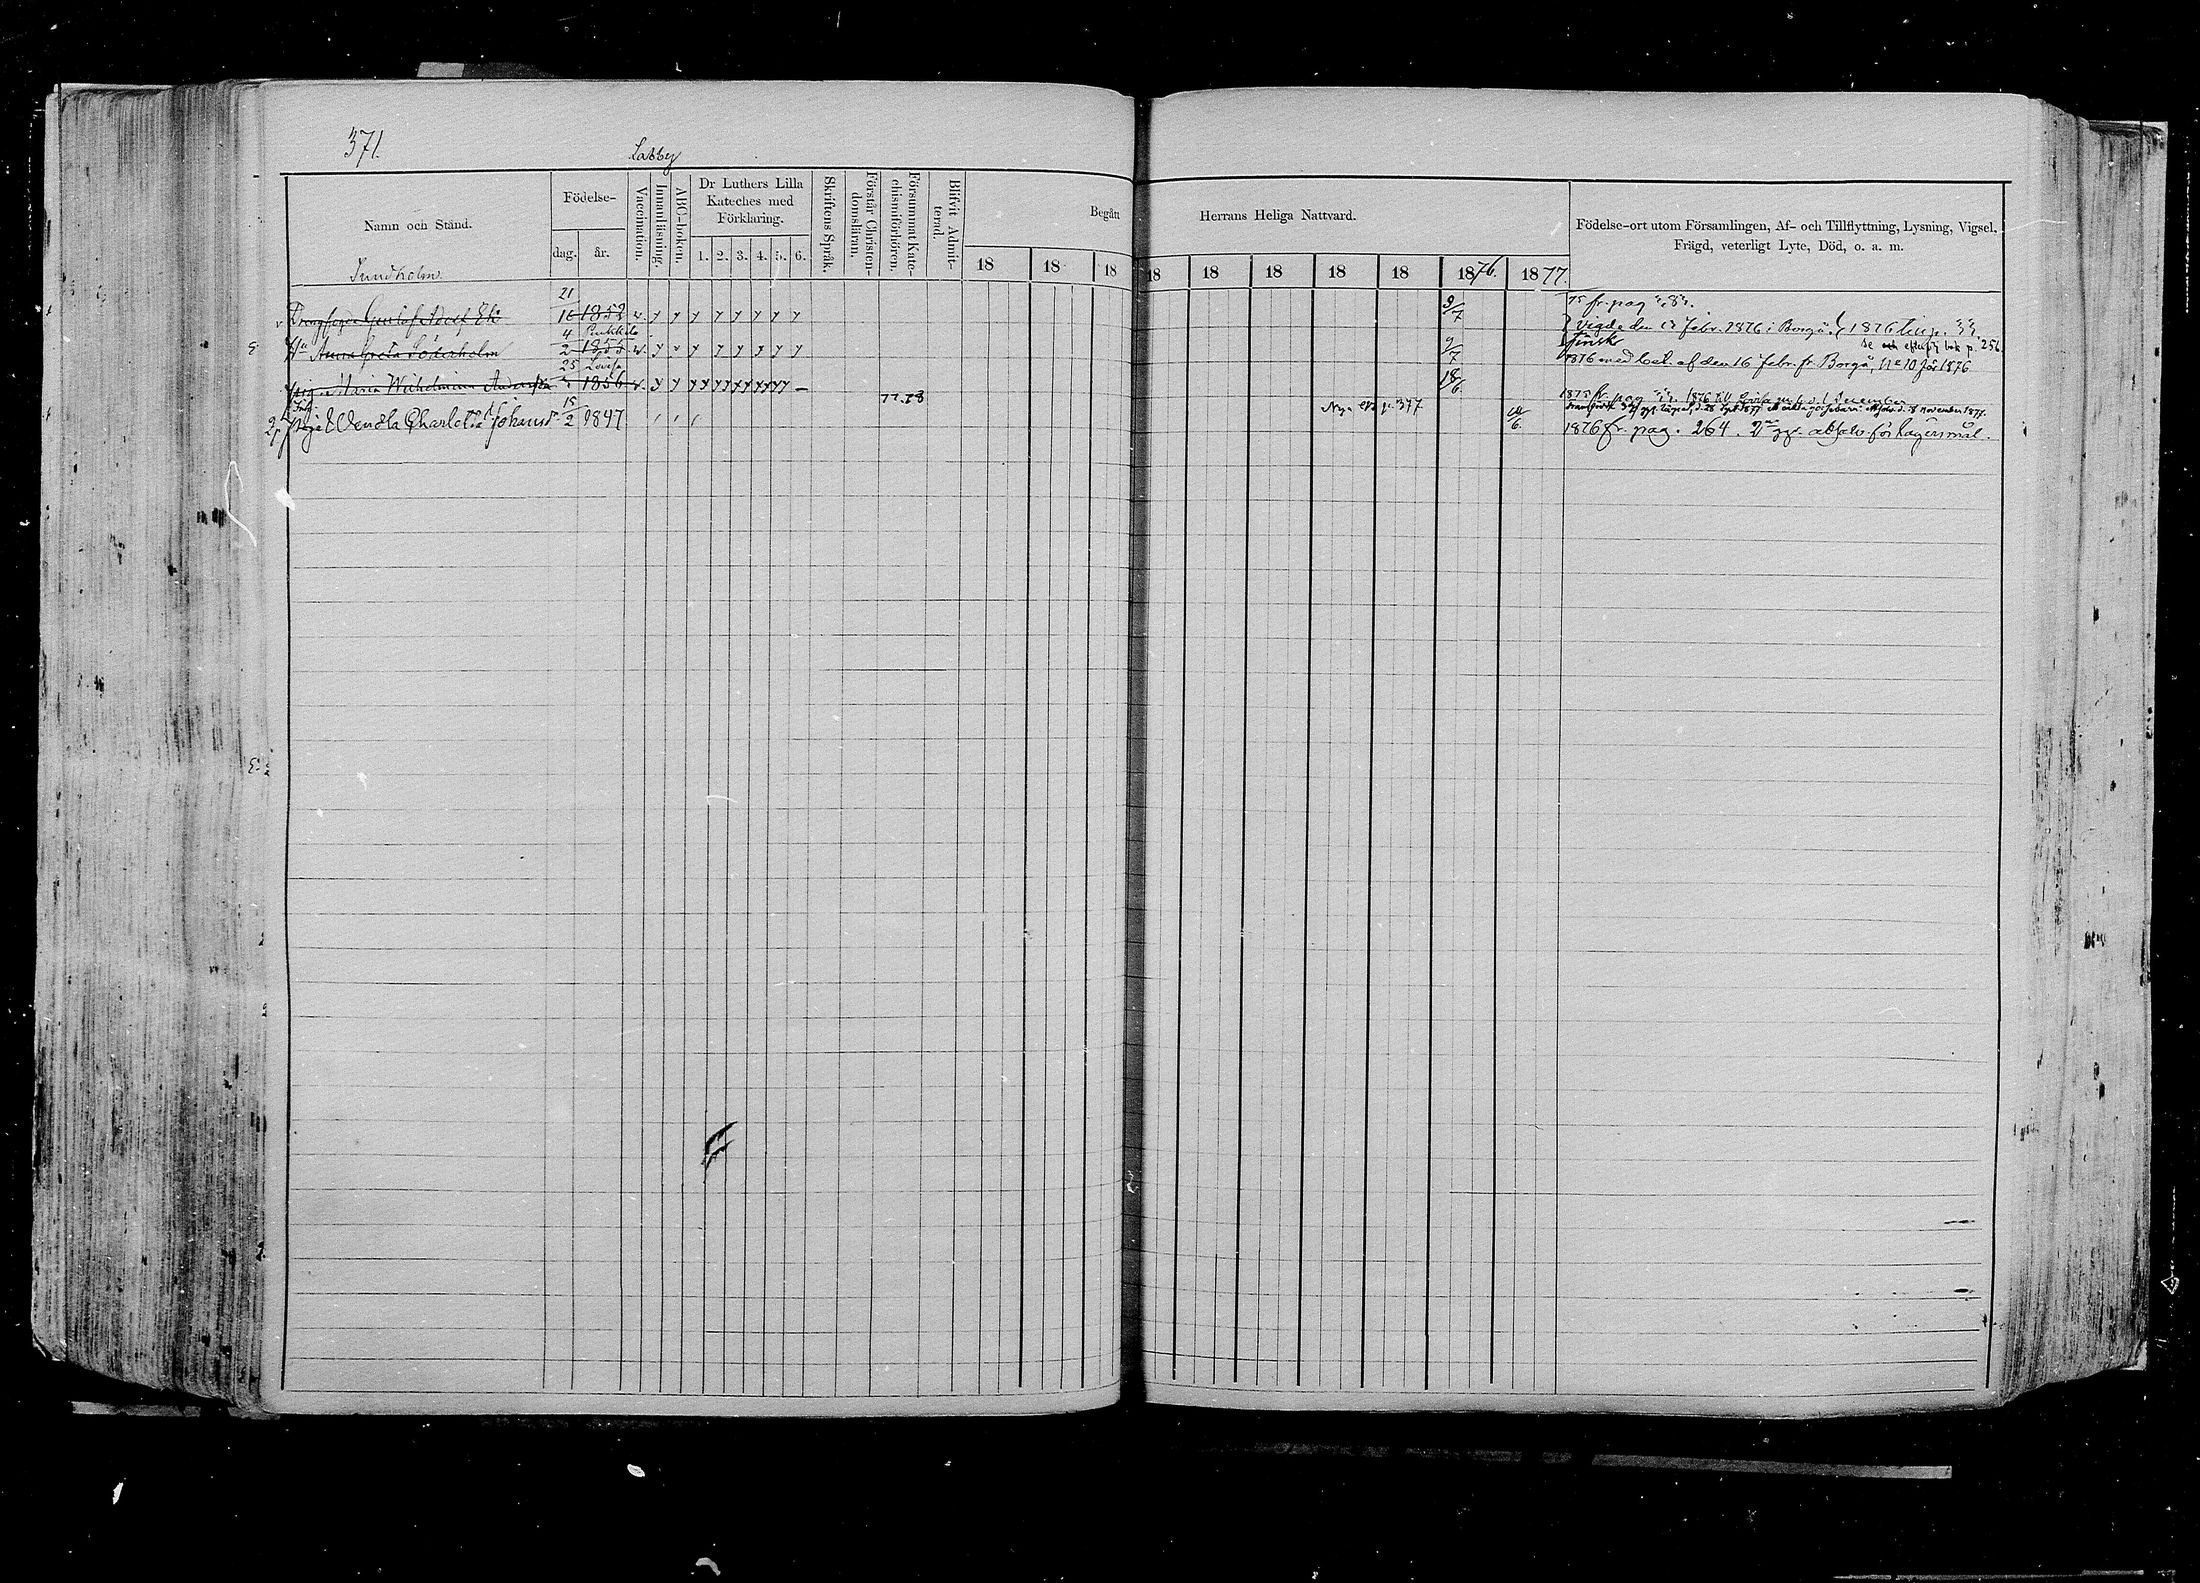 371.
Labby
Namn och Stånd.
Födelse-
dag. år.
Vaccination.
Innanläsning.
ABC-boken.
Dr Luthers Lilla Kateches med Förklaring.
1. 2. 3. 4. 5. 6.
Skriftens Språk.
Förstår Christendomsläran.
Försummat Katechismiförhören.
Blifvit Admitterad.
Begått Herrans Heliga Nattvard.
18 18 18 18 18 18 18 18 1876. 1877.
Födelse-ort utom Församlingen, Af- och Tillflyttning, Lysning, Vigsel,
Frägd, veterligt Lyte, Död, o. a. m.
Sundholm
Gustaf Adolf Ek 21/10 1852 v. y y y y y y y y 9/7 fr. pag
Vigde den 13 Febr. 1876 i Borgå. 1876 till p.
Hu Anna Greta Söderholm 4/2 Pukkila 1855 v. y y y y y y y 9/7 finsk se och efterfölj bok p. 256
1876 med bet. af den 16 Febr. fr. Borgå, No 10 för 1876
Pig. Maria Wilhelmina 25 Lovisa 1856 v. y y y y y y y y — 18/6 1875 fr. pag 1876 till Lovisa
77.78 Nya p. 377
Pig. Wendla Charlotta Johansdr 15/2 1847 6 1876 fr. pag. 264. 2 ggr. absolv. för lägersmål.